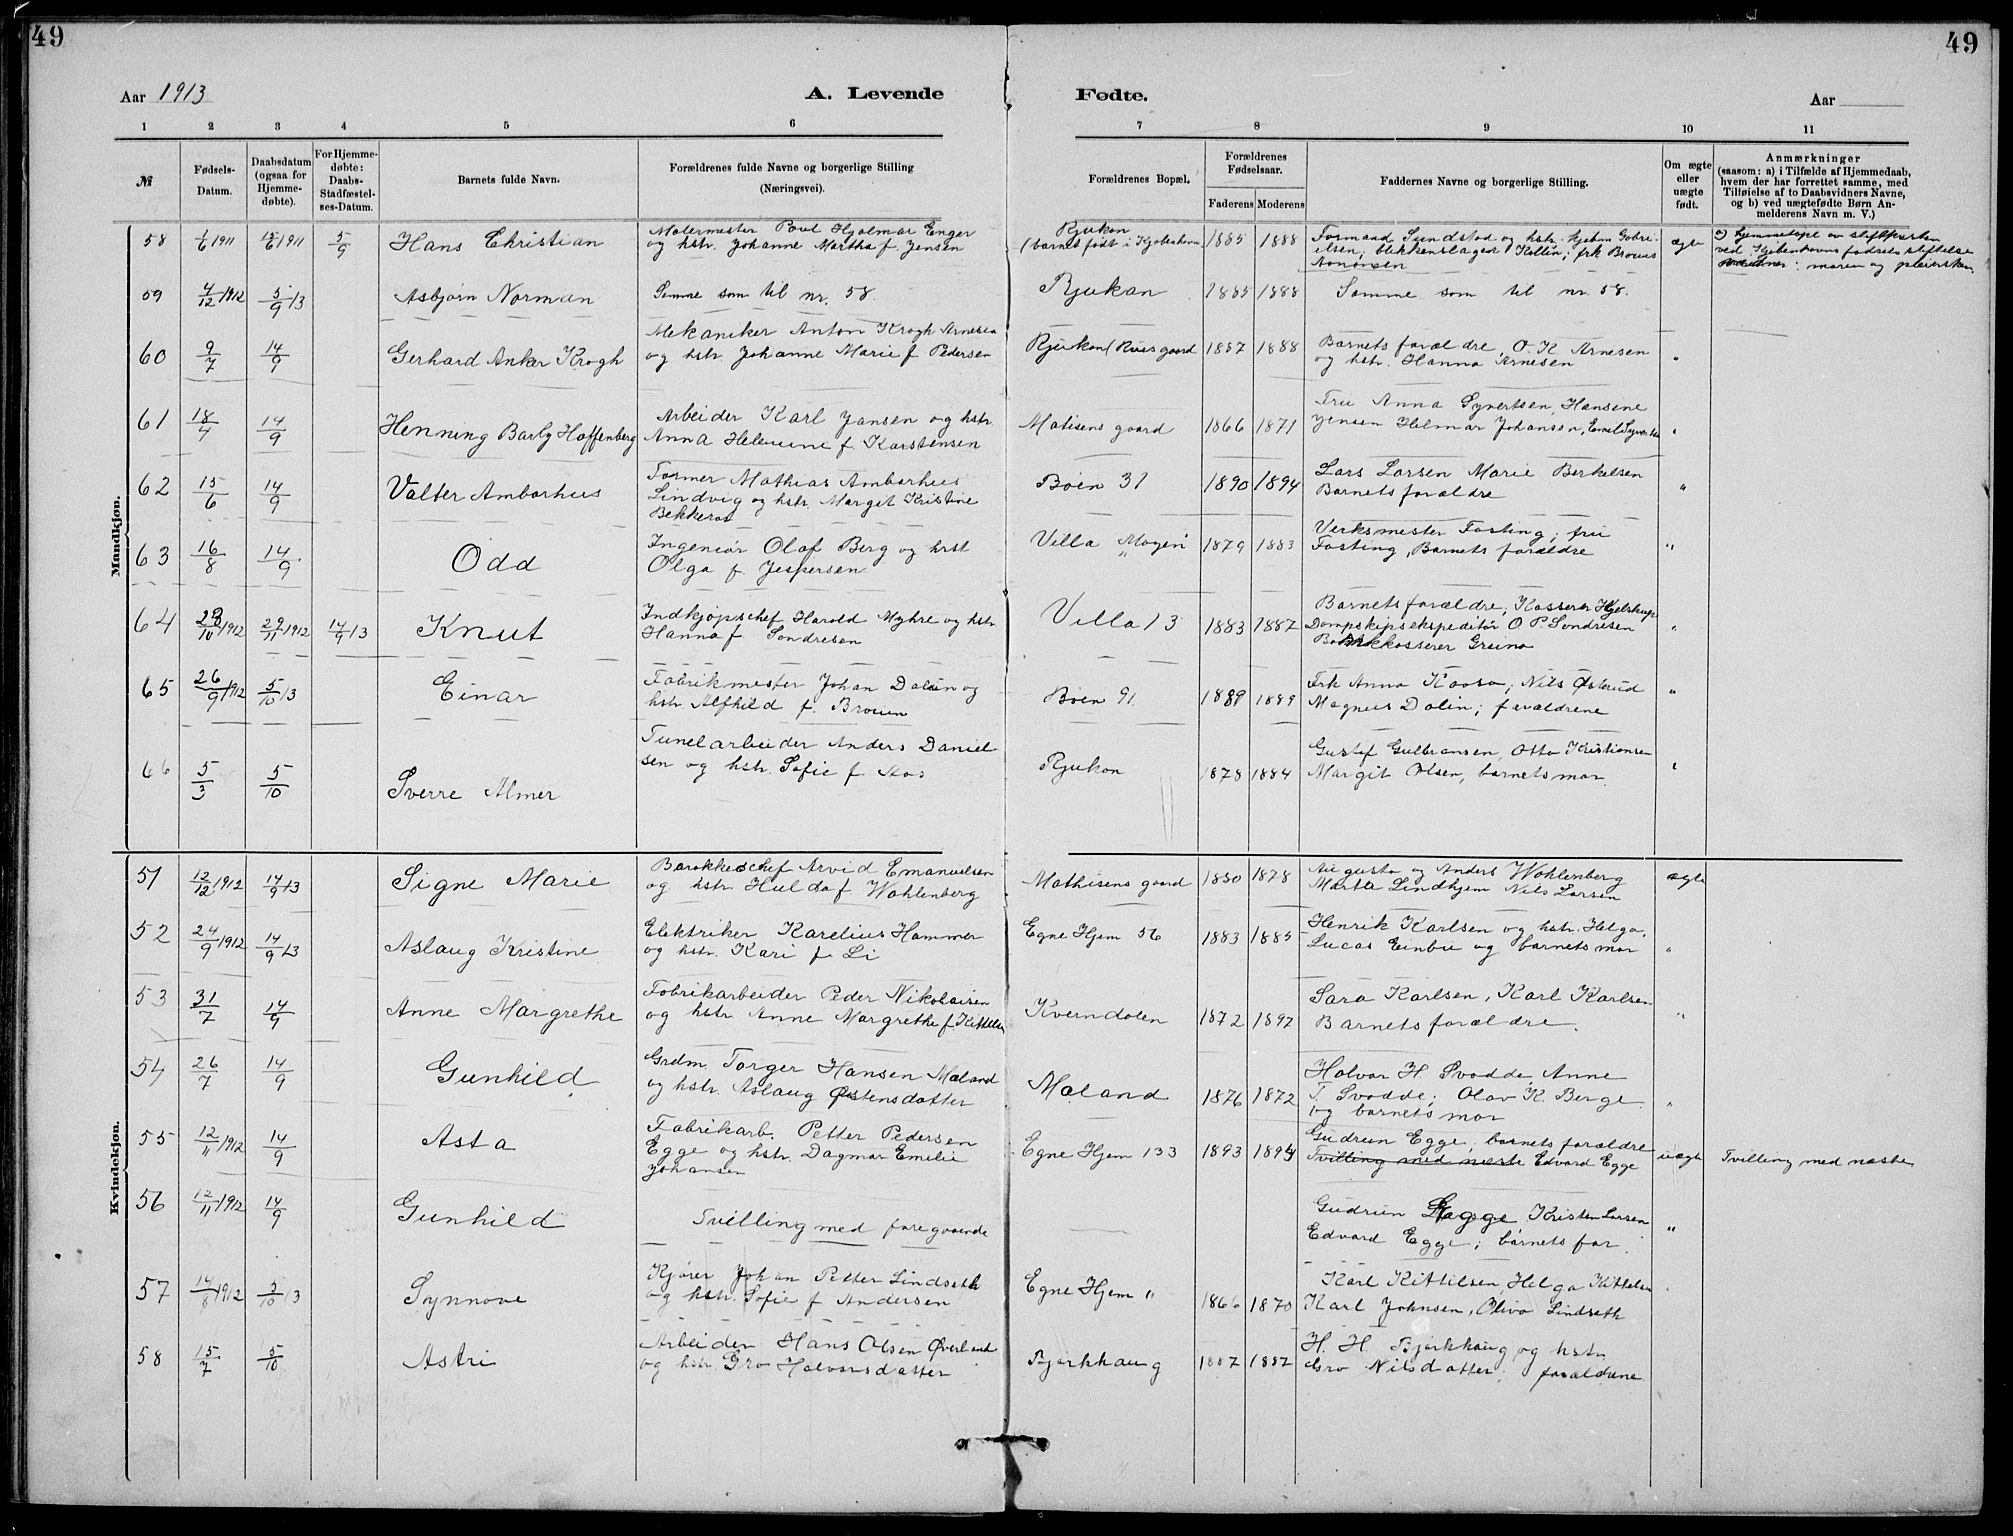 49
49
Aar 1913
A. Levende
Fødte.
Aar
1 2 3 4 5 6 7 8 9 10 11
№
Fødsels-
Datum.
Daabsdatum
(ogsaa for
Hjemme-
døbte).
For Hjemme-
døbte:
Daabs-
Stadfæstel-
ses-Datum.
Barnets fulde Navn.
Forældrenes fulde Navne og borgerlige Stilling
(Næringsvei).
Forældrenes Bopæl.
Forældrenes
Fødselsaar.
Faderens Moderens
Faddernes Navne og borgerlige Stilling.
Om ægte
eller
uægte
født.
Anmærkninger
(saasom: a) i Tilfælde af Hjemmedaab,
hvem der har forrettet samme, med
Tilføielse af to Daabsvidners Navne,
og b) ved uægtefødte Børn An-
melderens Navn m. V.)
Mandkjøn.
58 1/6 1911 15/6 1911 5/9 Hans Christian
Malermester Poul Hjalmar Enger
og hstr. Johanne Martha f Jensen
Rjukan
(barnet født i Kjøbenhavn
1885 1888
Formand Sundstad og hstr. hjelm Gabri-
elsen, blikkenslager Kollin; frk
ægte
ved Kjøbenhavns fødsels stiftelse
59 4/12 1912 5/9 13 Asbjørn Norman Samme som til nr. 58. Rjukan 1885 1888 Samme som til nr. 58.
60 9/7 14/9 Gerhard Anker Krogh
Mekaniker Anton Krogh Arnesen
og hstr. Johanne Marie f Pedersen
Rjukan 1887 1888
Barnets forældre, O. K. Arnesen
og hstr. Hanna Arnesen "
61 18/4 14/9 Henning Barly Hoffenberg
Arbeider Karl Jansen og hstr.
Anna Helemine f Karstensen
Matisens gaard 1866 1871
Fru Anna Syvertsen, Hansene
Jensen Helmar Johansen, Emil Syvertsen "
62 15/6 14/9 Valter Ambarhus
Former Mathias Ambarhus
Lindvig og hstr. Margit Kristine
Bekkeros
Bøen 31 1890 1894
Lars Larsen Marie Berkelsen
Barnets forældre "
63 16/8 14/9 Odd
Ingeniør Olaf Berg og hrst
Olga f. Jespersen
Villa "Moyen" 1879 1883
Verksmester Fosting; fru
Fosting, Barnets forældre "
64 28/10 1912 29/11 1912 14/9 13 Knut
Indkjøpschef Harold Myhre og hstr
Hanna f Sondresen
Villa 13 1883 1887
Barnets forældre, Kasserer Hjelskup
Dampskipsekspeditør O P Sondresen
Bankkasserer Greina "
65 26/9 1912 5/10 13 Einar
Fabrikmester Johan Dalin og
hstr. Alfhild f. Brouen
Bøen 91. 1889 1889
Frk Anna Kaasa; Nils Østerud
Magnus Dalin; forældrene "
66 5/3 5/10 Sverre Almer
Tunelarbeider Anders Daniel-
sen og hstr. Sofie f Aas
Rjukan 1878 1884
Gustaf Gulbransen, Otto Kristiansen
Margit Olsen, barnets mor. "
Kvindekjøn.
51 12/12 1912 14/9 13 Signe Marie
Barakkechef Arvid Emanuelsen
og hstr. Hulda f Wahlenberg
Mathisens gaard 1880 1878
Augusta og Anders Wohlenberg
Marta Lindhjem Nils Larsen
ægte
52 24/9 1912 14/9 13 Aslaug Kristine
Elektriker Karelius Hammer
og hstr. Kari f Li
Egne Hjem 56 1883 1885
Henrik Karlsen og hstr. Helga.
Lucas Einbu og barnets mor "
53 31/7 14/9 Anne Margrethe
Fabrikarbeider Peder Nikolaisen
og hstr Anne Margrethe f Kittelsen
Kverndalen 1872 1892
Sara Karlsen, Karl Karlsen
Barnets forældre. "
54 26/7 14/9 Gunhild
Grdm. Torger Hansen Mæland
og hstr. Aslaug Østensdatter
Mæland 1876 1872
Halvor H Svadde, Anne
T. Svadde; Olav K. Berge
og barnets mor "
55 12/11 1912 14/9 Asta
Fabrikarb. Petter Pedersen
Egge og hstr. Dagmar Emelie
Johansen
Egne Hjem 133 1893 1894
Gudrun Egge; barnets forældre
Tvilling med næste Edvard Egge
uægte
Tvilling med næste
56 12/11 1912 14/9 Gunhild
Tvilling med foregaaende
Gudrun Egge Kristen Larsen
Edvard Egge; barnets far. "
57 14/8 1912 3/10 13 Synnøve
Kjører Johan Petter Lindseth
og hstr. Sofie f Andersen
Egne Hjem " 1866 1870
Karl Kittilsen, Helga Kittelsen
Karl Johnsen, Oliva Lindseth
58 15/7 5/10 Astri
Arbeider Hans Olsen Øverland
og hstr. Gro Halvorsdatter
Bjørkhaug 1887 1882
H. H Bjørkhaug og hstr
Gro Nilsdatter; forældrene